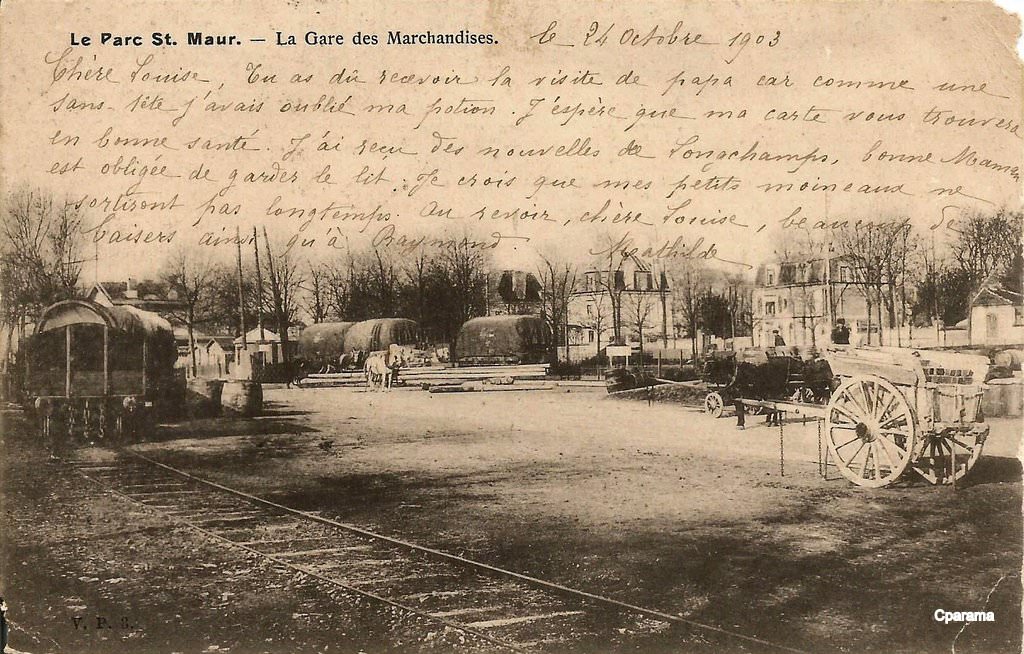 Le Parc St. Maur. — La Gare des Marchandises.
le 24 Octobre 1903
Chère Louise, Tu as dû recevoir la visite de papa car comme une
sans-tête j'avais oublié ma potion. J'espère que ma carte vous trouvera
en bonne santé. J'ai reçu des nouvelles de Longchamps, bonne Maman
est obligée de garder le lit. Je crois que mes petits moineaux ne
sortiront pas longtemps. Au revoir, chère Louise, beaucoup de
baisers ainsi qu'à Raymond.
Mathilde
V. P. S.
Cparama